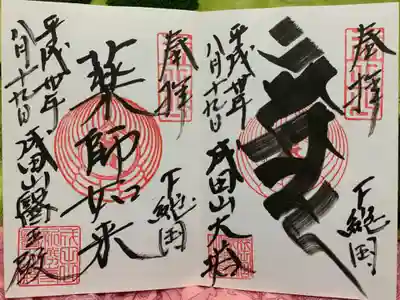 奉拝
下総国
成田山大塔
平成卅年
八月十九日
奉拝
下総国
薬師如来
成田山醫王殿
平成卅年
八月十九日